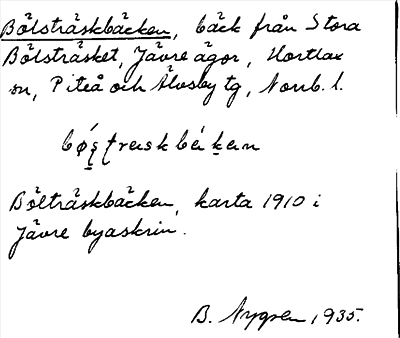 Bölsträskbäcken, bäck från Stora
Bölsträsket, Jävre ägor, Hortlax
sn, Piteå och Älvsby tg, Norrb. l.
Bölträskbäcken, karta 1910 i
Jävre byaskrin.
B. Nygren, 1935.